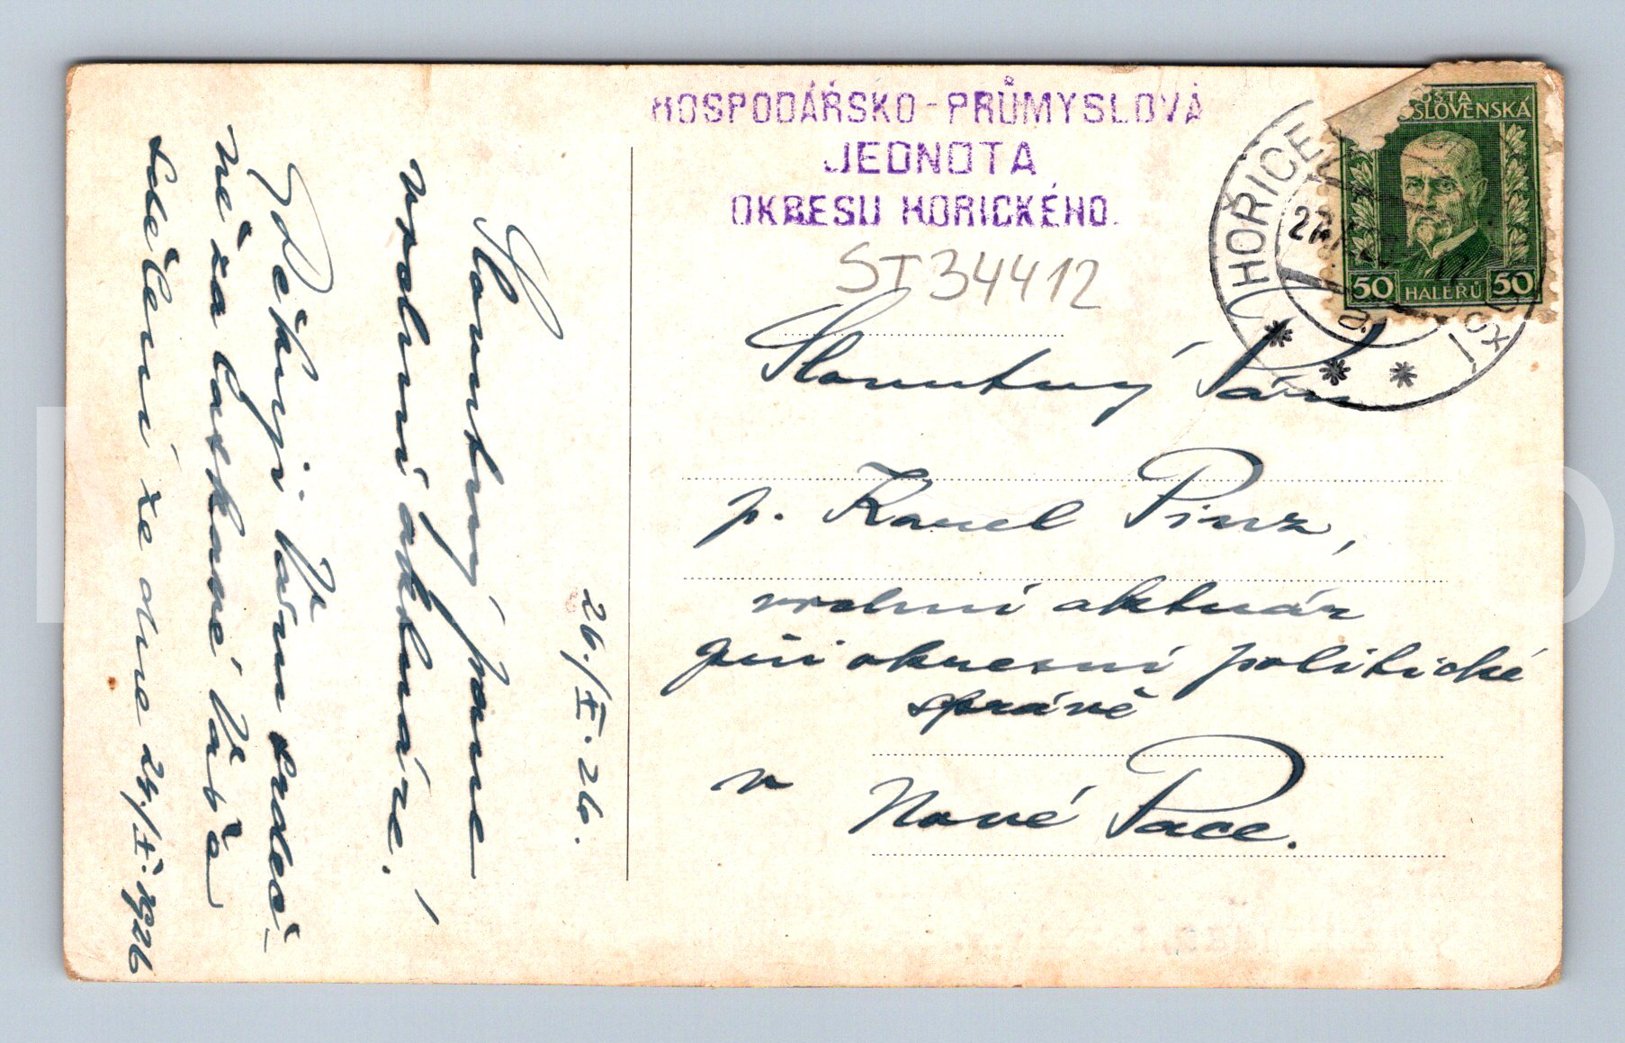 HOSPODÁŘSKO-PRŮMYSLOVÁ
JEDNOTA
OKRESU HORICKÉHO.
ST34412
POŠTA
SLOVENSKÁ
50 HALÉŘŮ 50
HOŘICE
Slovutný Pán
p. Karel Pinz,
vrchní aktuár
při okresní politické
správě
v Nové Pace.
26./X.26.
Slovutný pane
vrchní aktuáre!
Děkuji Vám srdeč-
ně za laskavé Vaše
sdělení ze dne 24./X.1926